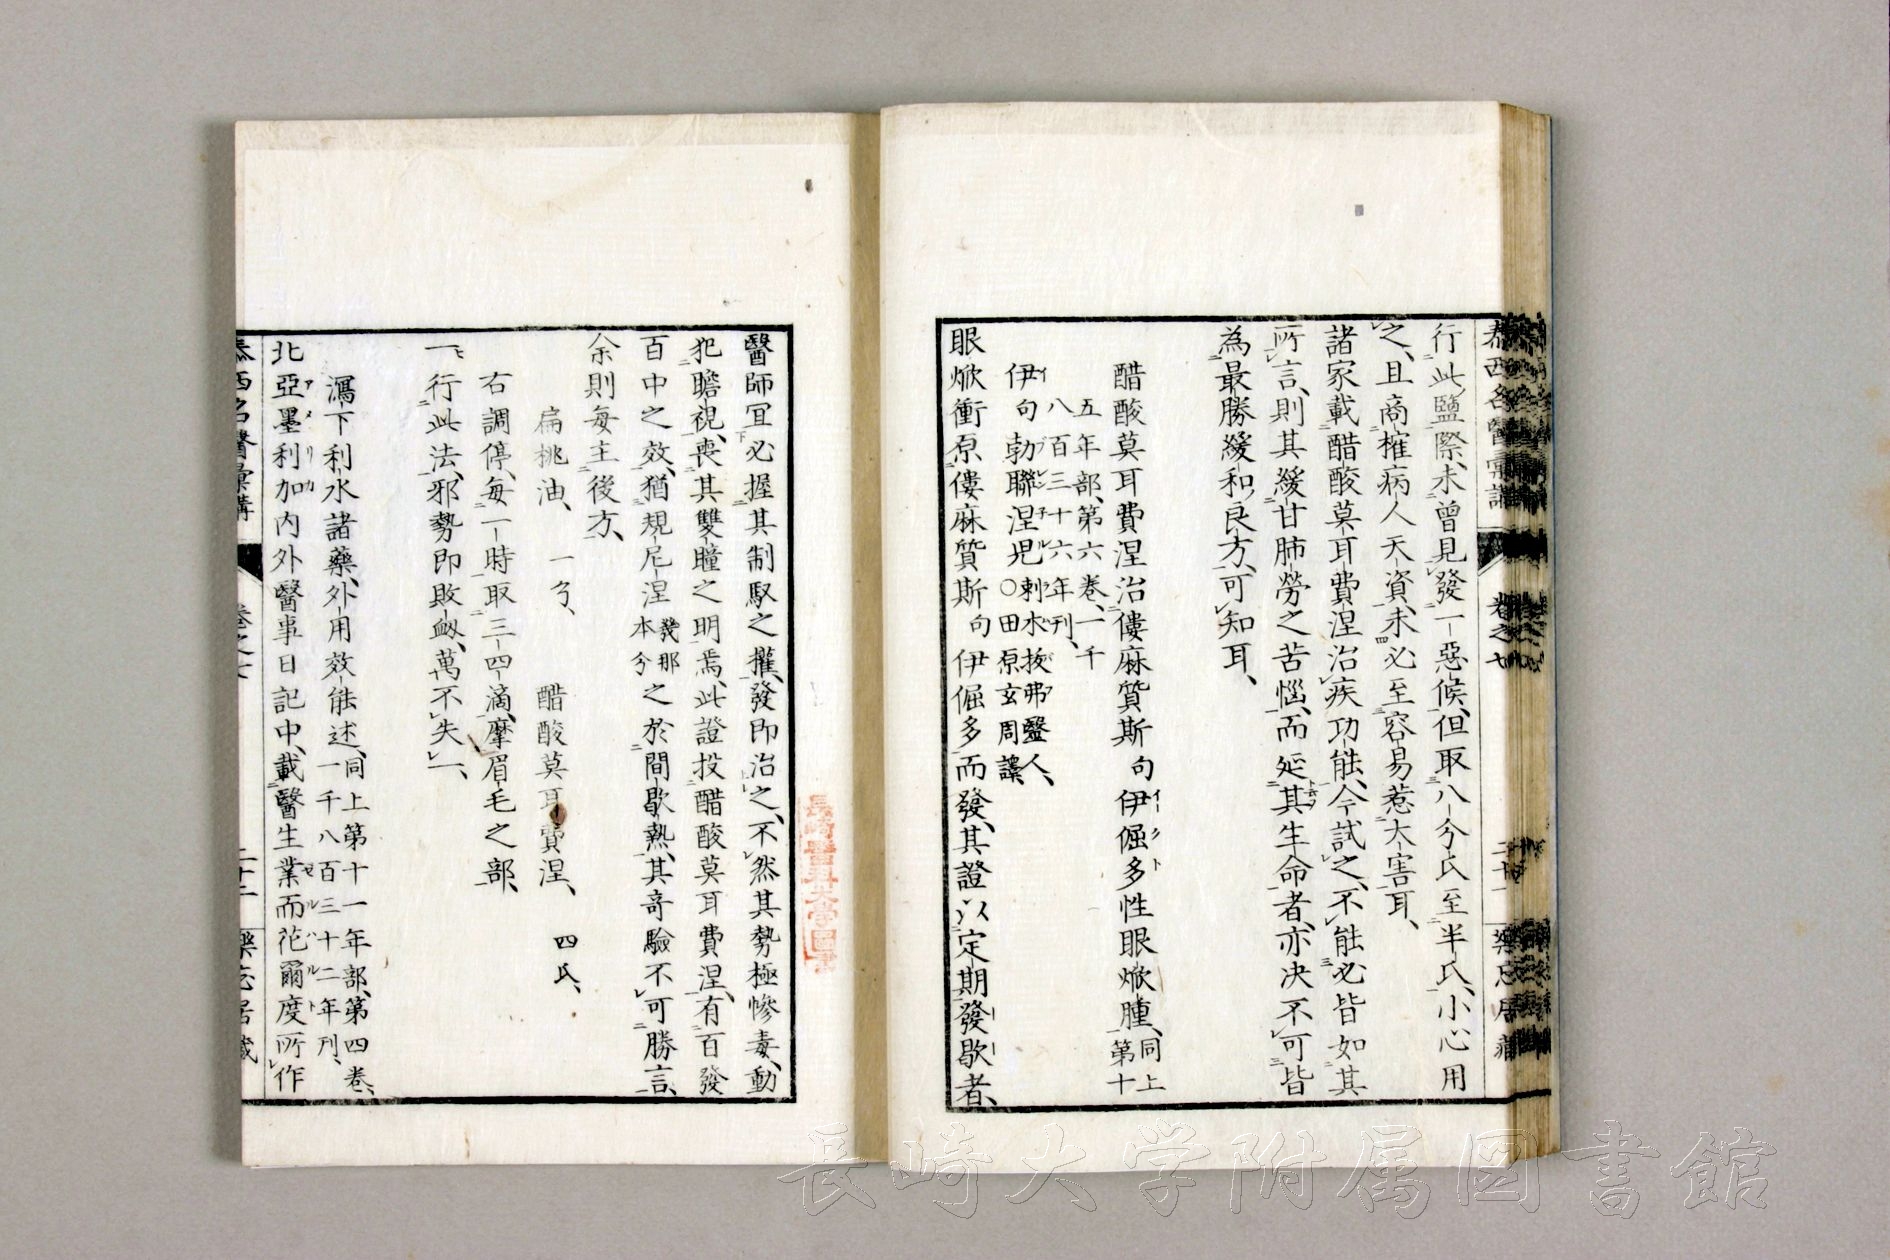 泰西名醫彙講
卷之七
二十一
樂志居藏
行此鹽際、未曾見發一惡候、但取八分氏至半氏、小心用
之、且商搉病人天資、未必至容易惹大害耳、
諸家載醋酸莫耳費涅治疾功能、今試之、不能必皆如其
所言、則其緩甘肺勞之苦惱、而延其生命者、亦决不可皆
為最勝緩和良方、可知耳、
醋酸莫耳費涅治僂麻質斯句伊倔多性眼焮腫、同上第十
五年部、第六卷、一千
八百三十六年刊、
伊句勃聯涅児刺水拔弗醫人、〇田原玄周譯、
眼焮衝原僂麻質斯句伊倔多而發、其證以定期發歇者、
醫師冝必握其制馭之權、發即治之、不然其勢極慘毒、動
犯瞻視、喪其雙瞳之明焉、此證投醋酸莫耳費涅、有百發
百中之效、猶規尼涅幾那本分之於間歇熱、其竒驗不可勝言、
余則毎主後方、
扁桃油、一勺、醋酸莫耳費涅、四氏、
右調停、毎一時取三四滴、摩眉毛之部、
一行此法、邪勢即敗衂、萬不失一、
瀉下利水諸藥、外用效能述、同上第十一年部、第四卷、
一千八百三十二年刊、
北亞墨利加内外醫事日記中、載醫生業而花爾度所作
泰西名醫彙講
卷之七
二十二
樂志居藏
長崎醫科大學圖書
長崎大学附属図書館